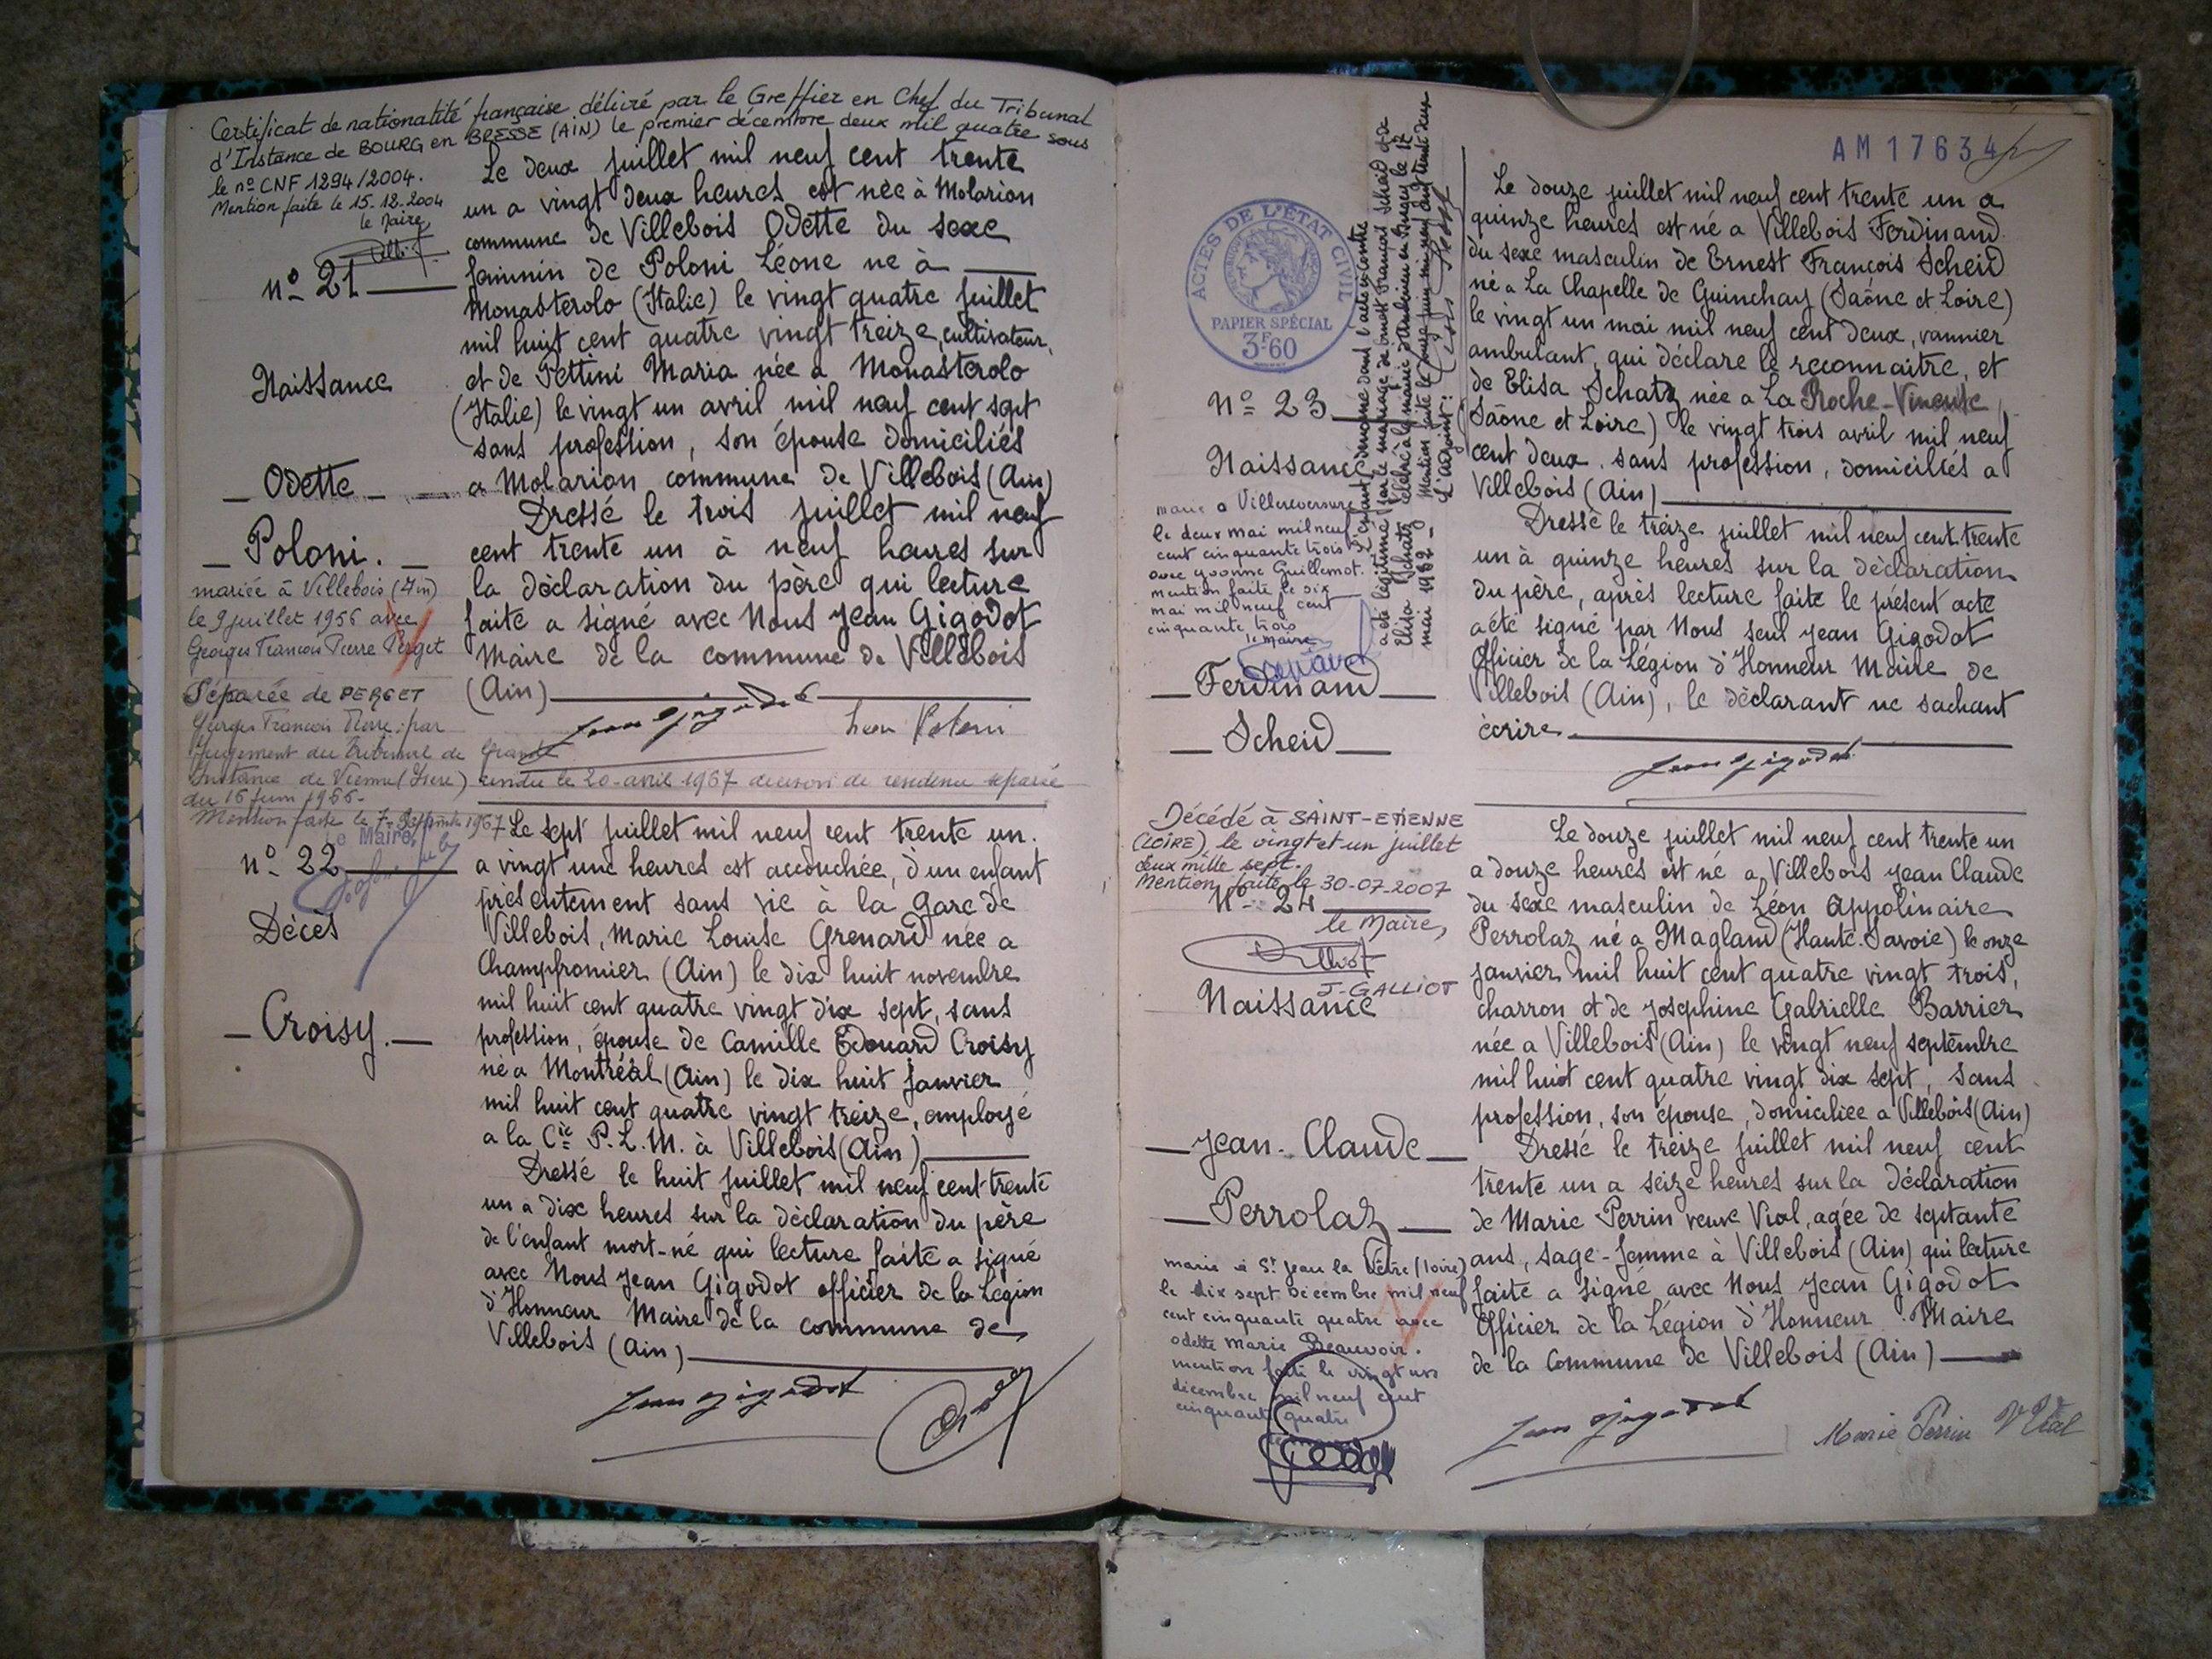 Certificat de nationalité française délivré par le Greffier en Chef du Tribunal
d'Instance de BOURG en BRESSE (AIN) le premier décembre deux mil quatre sous
le nº CNF 1294/2004.
Mention faite le 15.12.2004
le Maire,
nº 21
Naissance
Odette
Poloni.
mariée à Villebois (Ain)
le 9 juillet 1956 avec
Georges François Pierre Perget
Séparée de PERGET
Georges François Pierre par
Jugement du Tribunal de Grande
Instance de Vienne (Isère) rendu le 20 avril 1967 decison de residence séparée
du 16 juin 1966.
Mention faite le 7 Septembre 1967
Le Maire,
Le deux juillet mil neuf cent trente
un a vingt deux heures est née à Molarion
commune de Villebois Odette du sexe
feminin de Poloni Léone né à
Monasterolo (Italie) le vingt quatre juillet
mil huit cent quatre vingt treize, cultivateur,
et de Pettini Maria née a Monasterolo
(Italie) le vingt un avril mil neuf cent sept
sans profession, son épouse domiciliés
a Molarion commune de Villebois (Ain)
Dressé le trois juillet mil neuf
cent trente un à neuf heures sur
la déclaration du père qui lecture
faite a signé avec Nous Jean Gigodot
Maire de la commune de Villebois
(Ain)
Jean Gigodot
Leon Poloni
nº 22
Décès
Croisy.
Le sept juillet mil neuf cent trente un.
a vingt une heures est accouchée, d'un enfant
présentement sans vie à la Gare de
Villebois, Marie Louise Grenard née a
Champfromier (Ain) le dix huit novembre
mil huit cent quatre vingt dix sept, sans
profession, épouse de Camille Edouard Croisy
né a Montréal (Ain) le dix huit janvier
mil huit cent quatre vingt treize, employé
a la Cie P.L.M. à Villebois (Ain)
Dressé le huit juillet mil neuf cent trente
un a dix heures sur la déclaration du père
de l'enfant mort-né qui lecture faite a signé
avec Nous Jean Gigodot officier de la Légion
d'Honneur Maire de la commune de
Villebois (Ain)
Jean Gigodot
AM 17634
ACTES DE L'ÉTAT CIVIL
PAPIER SPÉCIAL
3F60
nº 23
Naissance
marié a Villereversure
le deux mai mil neuf
cent cinquante trois
avec Yvonne Guillemot.
mention faite le six
mai mil neuf cent
cinquante trois
le maire
Ferdinand
Scheid
L'enfant dénommé dans l'acte ci-contre
a été légitimé par le mariage de Ernest François Scheid et de
Elisa Schatz célébré à la mairie d'Ambérieu en Bugey le 12
mai 1932 -
L'adjoint:
Le douze juillet mil neuf cent trente un a
quinze heures est né a Villebois Ferdinand
du sexe masculin de Ernest François Scheid
né a La Chapelle de Guinchay (Saône et Loire)
le vingt un mai mil neuf cent deux, vannier
ambulant, qui déclare le reconnaitre, et
de Elisa Schatz née a La Roche-Vineuse,
(Saône et Loire) le vingt trois avril mil neuf
cent deux. sans profession, domiciliés a
Villebois (Ain)
Dressé le treize juillet mil neuf cent trente
un à quinze heures sur la déclaration
du père, après lecture faite le présent acte
a été signé par Nous seul Jean Gigodot
Officier de la Légion d'Honneur Maire de
Villebois (Ain), le déclarant ne sachant
écrire
Jean Gigodot
Décédé à SAINT-ETIENNE
(LOIRE), le vingt et un juillet
deux mille sept.
Mention faite le 30-07-2007
le Maire,
J-GALLIOT
Nº 24
Naissance
Jean-Claude
Perrolaz
marié à St Jean la Vêtre (Loire)
le dix sept décembre mil neuf
cent cinquante quatre avec
odette Marie Beauvoir.
mention faite le vingt un
décembre mil neuf cent
cinquante quatre
Le douze juillet mil neuf cent trente un
a douze heures est né a Villebois Jean Claude
du sexe masculin de Léon Appolinaire
Perrolaz né a Magland (Haute-Savoie) le onze
janvier mil huit cent quatre vingt trois,
charron et de Joséphine Gabrielle Barrier
née a Villebois (Ain) le vingt neuf septembre
mil huit cent quatre vingt dix sept, sans
profession, son épouse, domiciliée a Villebois (Ain)
Dressé le treize juillet mil neuf cent
trente un a seize heures sur la déclaration
de Marie Perrin veuve Vial, agée de septante
ans, sage-femme à Villebois (Ain) qui lecture
faite a signé avec Nous Jean Gigodot
Officier de la Légion d'Honneur Maire
de la commune de Villebois (Ain)
Jean Gigodot
Marie Perrin Vve Vial